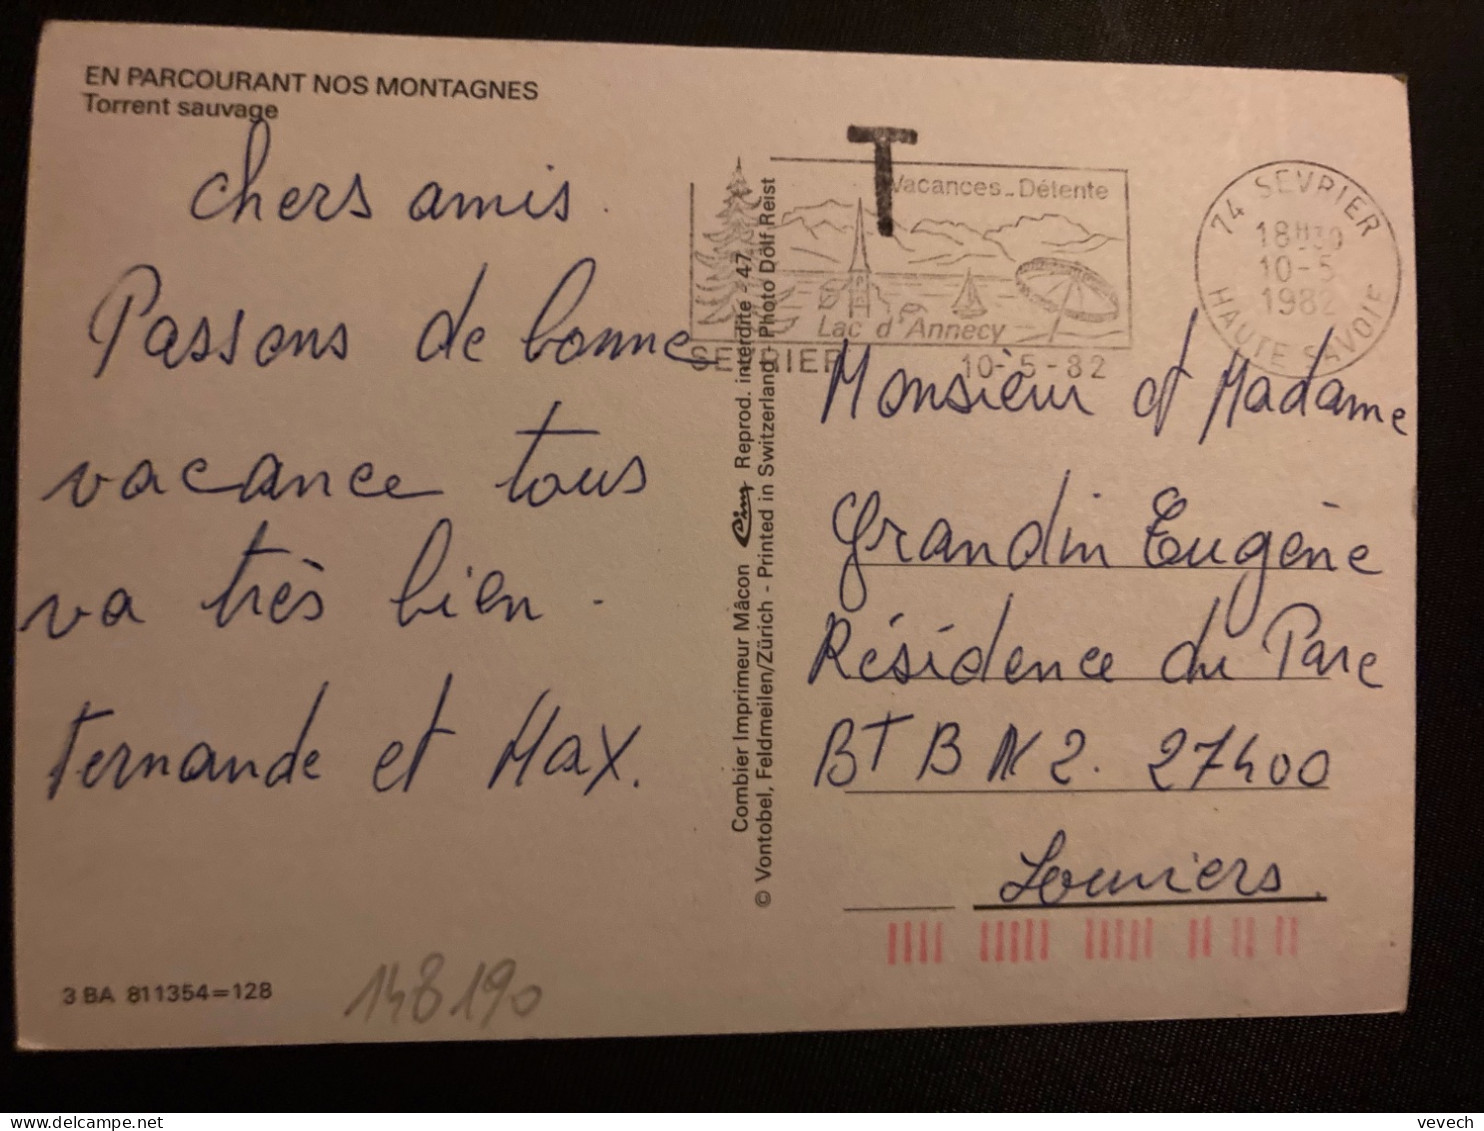 EN PARCOURANT NOS MONTAGNES
Torrent sauvage
chers amis.
Passons de bonne
vacance tous
va très bien.
Fernande et Max.
3 BA 811354=128
148190
Combier Imprimeur Mâcon Cim Reprod. interdite - 47
© Vontobel, Feldmeilen/Zürich - Printed in Switzerland - Photo Dolf Reist
T
Vacances_Détente
Lac d'Annecy
SEVRIER 10-5-82
74 SEVRIER
18H30
10-5
1982
HAUTE SAVOIE
Monsieur et Madame
Grandin Eugène
Résidence du Parc
BT B N 2. 27400
Louviers.
vevech